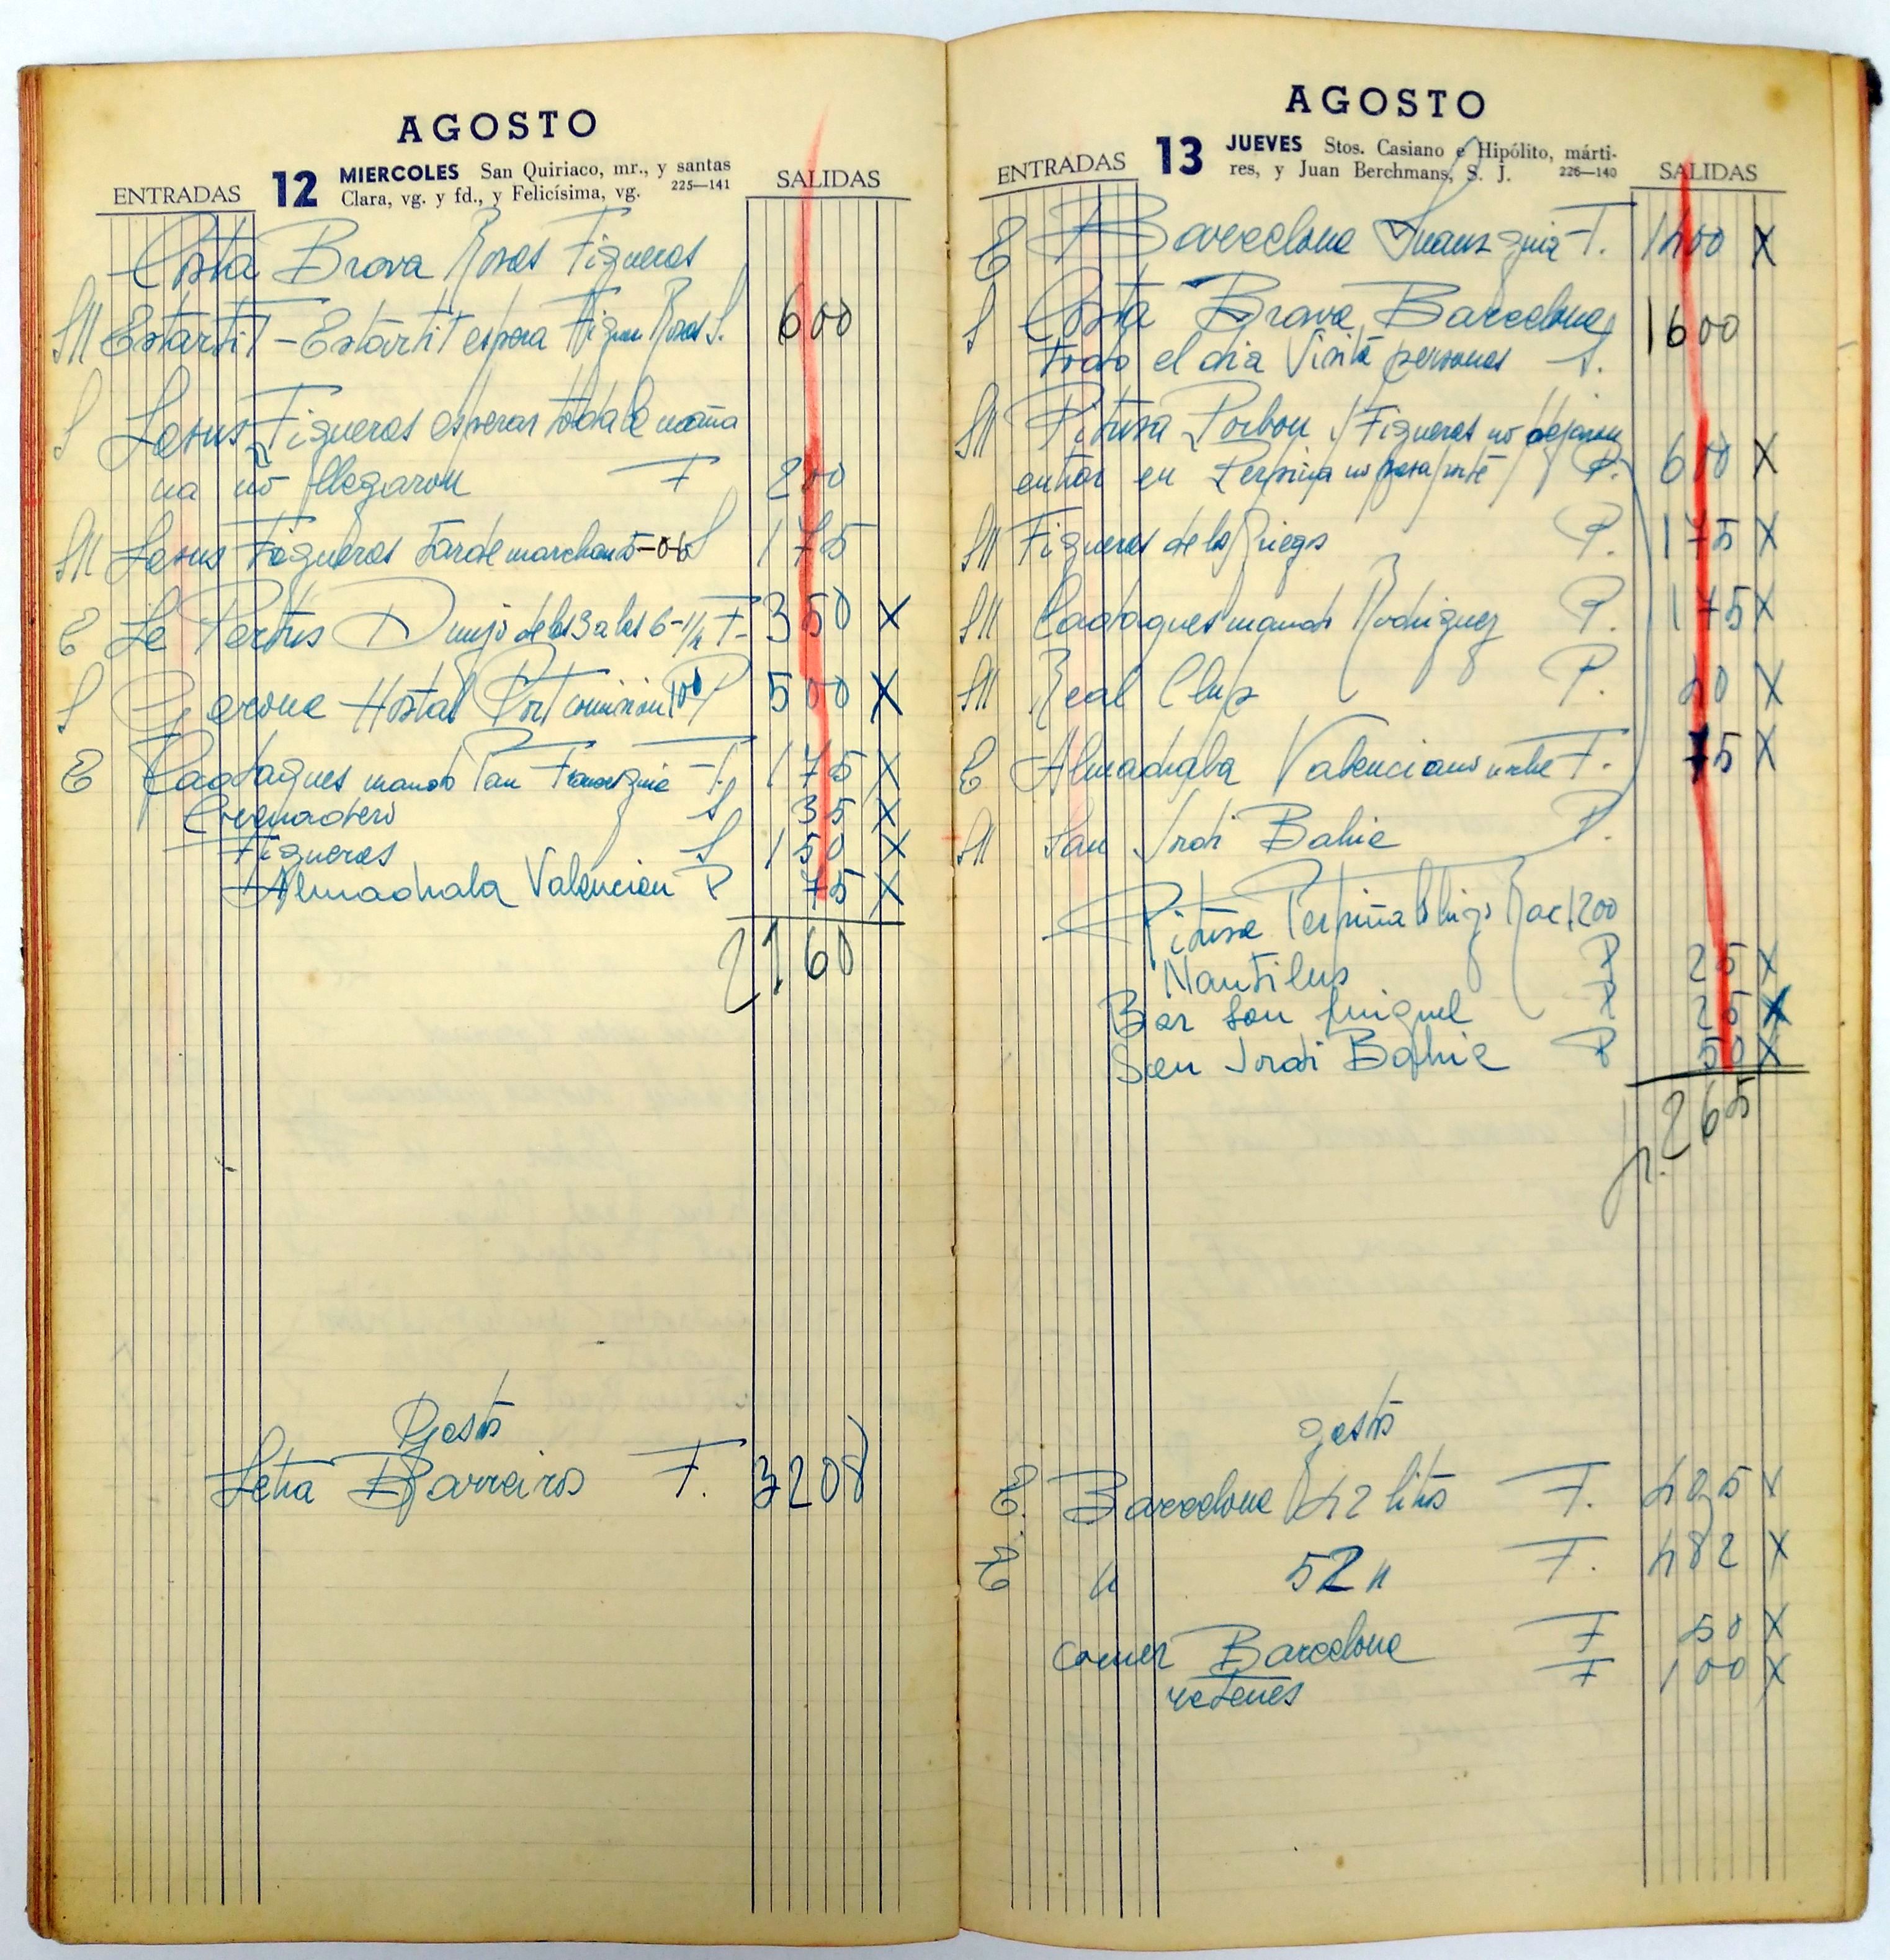 AGOSTO
ENTRADAS 12 MIERCOLES San Quiriaco, mr., y santas
Clara, vg. y fd., y Felicísima, vg. 225—141
SALIDAS
Costa Brava Rosas Figueras
SM Estartit - Estartit espera Figueras Rosas S. 600
S Jesus Figueras esperar toda la maña
na no llegaron F 200
SM Jesus Figueras tarde marchant S 175
E Le Pertus de las 3 a las 6-1/2 F. 350 X
S Gerona Hostal Port comision 100 P 500 X
E Cadaques mando F. 175 X
S 35 X
Figueras S 150 X
Almadraba Valencian P 75 X
2160
Gastos
Letra Barreiros F. 3208
AGOSTO
ENTRADAS 13 JUEVES Stos. Casiano e Hipólito, márti-
res, y Juan Berchmans, S. J. 226—140
SALIDAS
E Barcelona F. 1400 X
S Costa Brava Barcelona 1600
todo el dia Visita personas S.
SM Pitusa Porbou y Figueras no dejaron
entrar en Perpiña no pasaporte P. 600 X
SM Figueras de los Griegos P. 175 X
SM Cadaques mando Rodriguez P. 175 X
SM Real Club P. X
E Almadraba Valenciano noche F. 75 X
SM San Jordi Bahia P.
Pitusa Perpiña 1200
Nautilus P 25 X
Bar San Miguel P 25 X
San Jordi Bahia P 50 X
265
gastos
E. Barcelona 42 litros F. X
E " 52 " F. 482 X
comer Barcelona F 50 X
retenes F 100 X